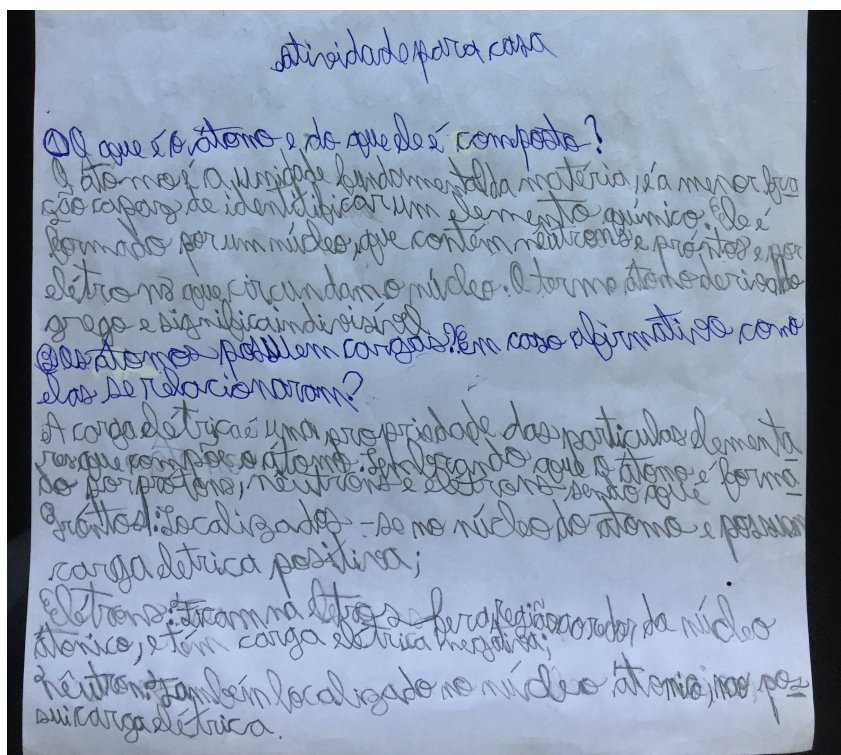 atividade para casa
① O que é o átomo e do que ele é composto?
O átomo é a unidade fundamental da matéria, é a menor fra
ção capaz de identificar um elemento químico. Ele é
formado por um núcleo, que contém nêutrons e próntos e por
elétrons que circundam o núcleo. O termo átomo deriva do
grego e significa indivisível
② es átomos possuem cargas? Em caso afirmativo como
elas se relacionaram?
A carga elétrica é uma propriedade das particulas elementa
res que compõe o átomo. Lembrando que o átomo é forma
do por protons, nêutrons e eletrons - senão que
Próntos: Localizados - se no núcleo do átomo e possuem
carga eletrica positiva;
Elétrons: Ficam na região ao redor da núcleo
atômico, e têm carga elétrica negativa;
Nêutron: Também localizado no núcleo atômico, não pos
sui carga elétrica.